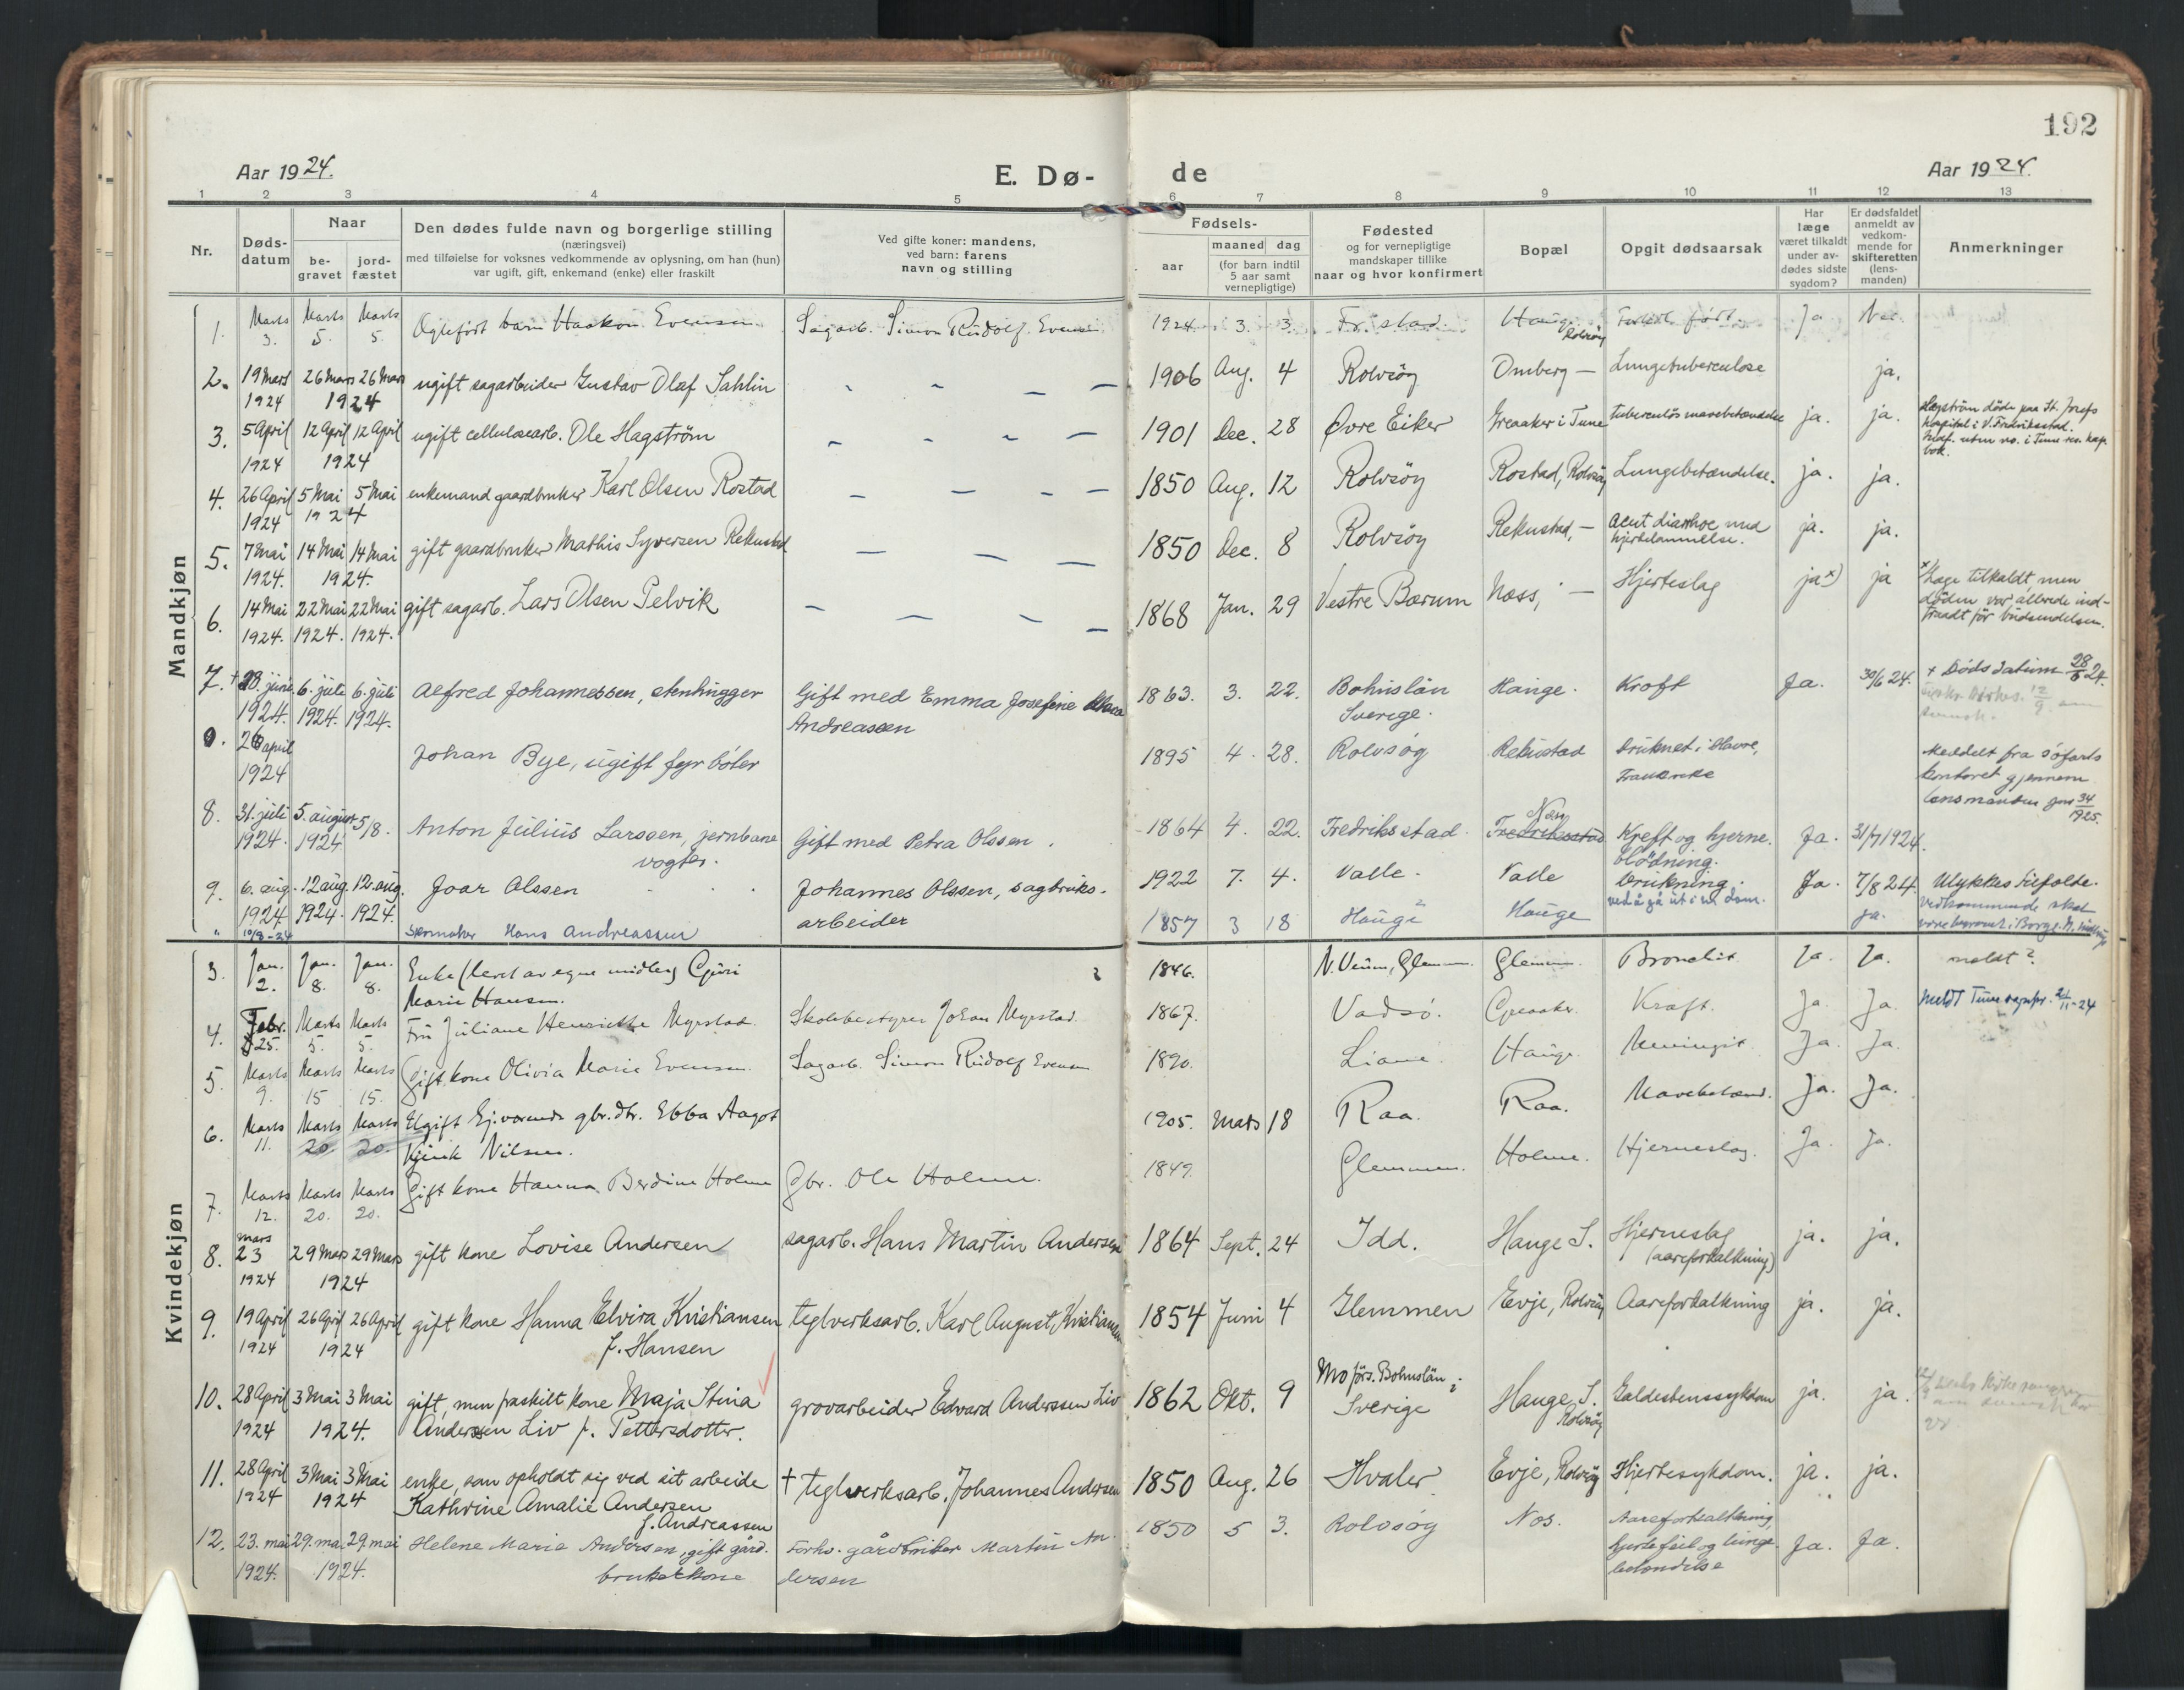 192
Aar 1924.
E. Dø-
de
Aar 1924.
1 2 3 4 5 6 7 8 9 10 11 12 13
Nr.
Døds-
datum
Naar
be-
gravet
jord-
fæstet
Den dødes fulde navn og borgerlige stilling
(næringsvei)
med tilføielse for voksnes vedkommende av oplysning, om han (hun)
var ugift, gift, enkemand (enke) eller fraskilt
Ved gifte koner: mandens,
ved barn: farens
navn og stilling
Fødsels-
aar
maaned dag
(for barn indtil
5 aar samt
vernepligtige)
Fødested
og for vernepligtige
mandskaper tillike
naar og hvor konfirmert
Bopæl
Opgit dødsaarsak
Har
læge
været tilkaldt
under av-
dødes sidste
sygdom?
Er dødsfaldet
anmeldt av
vedkom-
mende for
skifteretten
(lens-
manden)
Anmerkninger
Mandkjøn
1. Marts 3. Marts 5. Marts 5. barn Haakon Evensen Sagarb. Simon Rudolf Evensen 1924 3. 3. Fr.stad. Hauge Rolvsøy født. Ja Nei
2. 19 Mars 1924 26 Mars 26 Mars 1924 ugift sagarbeider Gustav Olaf Sahlin 1906 Aug. 4 Rolvsøy Omberg — Lungetuberculose ja.
3. 5 April 1924 12 April 12 April 1924 ugift cellulosearb. Ole Hagström 1901 Dec. 28 Øvre Eiker Greaaker i Tune tuberculøs mavebetændelse ja. ja. Hagström døde paa St. Josefs
hospital i V. Fredriksstad.
Indf. uten no. i Tune res. kap.
bok.
4. 26 April 1924 5 Mai 5 Mai 1924 enkemand gaardbruker Karl Olsen Rostad 1850 Aug. 12 Rolvsøy Rostad, Rolvsøy Lungebetændelse. ja. ja.
5. 7 Mai 1924. 14 Mai 14 Mai 1924. gift gaardbruker Mathis Syversen Rekustad 1850 Dec. 8 Rolvsøy Rekustad, — acut diarrhoe med
hjertelammelse. ja. ja.
6. 14 Mai 1924. 22 Mai 1924. 22 Mai 1924. gift sagarb. Lars Olsen Pelvik 1868 Jan. 29 Vestre Bærum Næss, — Hjerteslag ja x) ja x Læge tilkaldt, men
döden var allerede ind-
traadt før budsendelsen.
7. + 28. juni 1924. 6. juli 1924. 6. juli 1924. Alfred Johannessen, stenhugger Gift med Emma Josefine
Andreassen 1863. 3. 22. Bohuslän
Sverige. Hauge. Kreft Ja. 30/6 24. + Dødsdatum 28/6 24.
0. 26 april 1924 Johan Bye, ugift fyrbøter 1895 4. 28. Rolvsøy Rekustad Druknet i Havre,
Frankrike Meddelt fra sjøfarts
kontoret gjennem
lensmanden jnr 34
1925.
8. 31. juli 1924. 5. august 1924 5/8. Anton Julius Larssen, jernbane
vogter. Gift med Petra Olssen. 1864 4. 22. Fredriksstad. Nes
Fredriksstad Kreft og hjerne.
blödning. Ja. 31/7 1924.
9. 6. aug. 1924 12 aug. 1924. 12. aug. 1924. Joar Olssen Johannes Olssen, sagbruks-
arbeider 1922 7. 4. Valle. Valle Drukning.
ved å gå ut i en dam. Ja. 7/8 24. Ulykkes tilfælde.
" 10/8-24 Skomaker Hans Andreassen 1857 3 18 Hauge ? Hauge ja. vedkommende skal
være i Borge.
Kvindekjøn
3. Jan. 2. Jan. 8. Jan. 8. Enke (levet av egne midler)
Marie Hansen. 1846. N. Veum, Glemm. Glemm. Bronchit Ja. Ja. meldt?
4. Febr. 25. Marts 5. Marts 5. Fru Juliane Henriette Myrstad. Skolebestyrer Johan Myrstad. 1867. Vadsö. Greaaker. Kræft. Ja. Ja. meldt Tune 24
5. Marts 9. Marts 15 Marts 15. Gift kone Olivia Marie Evensen. Sagarb. Simon Rudolf Evensen 1890. Hauge. Meningit. Ja. Ja.
6. Marts 11. Marts 20. Marts 20. Ugift hj.værende gbr.dtr. Ebba Aagot
Nilsen. 1905. Mars 18 Raa. Raa. Mavebetænd. Ja. Ja.
7. Marts 12. Marts 20. Marts 20. Gift kone Hanna Berdine Holme Gbr. Ole Holme. 1849. Glemmen. Holme. Hjerneslag. Ja. Ja.
8. mars 23 1924 29 Mars 29 Mars 1924 gift kone Lovise Andersen sagarb. Hans Martin Andersen 1864 Sept. 24 Idd. Hauge S. Hjerneslag
(aareforkalkning) ja. ja.
9. 19 April 1924 26 April 26 April 1924 gift kone Hanna Elvira Kristiansen
f. Hansen teglverksarb. Karl August Kristiansen 1854 Juni 4 Glemmen Evje, Rolvsøy Aareforkalkning ja. ja.
10. 28 April 1924 3 Mai 3 Mai 1924. gift, men fraskilt kone Maja Stina
Anderssen Liv f. Pettersdotter. grovarbeider Edvard Anderssen Liv 1862 Okt. 9 Mo förs. Bohuslän
Sverige Hauge S.
Rolvsøy Galdestenssykdom ja. ja.
11. 28 April 1924 3 Mai 3 Mai 1924 enke, som opholdt sig ved sit arbeide
Kathrine Amalie Andersen
f. Andreassen + teglverksarb. Johannes Andersen 1850 Aug. 26 Hvaler Evje, Rolvsøy Hjertesykdom. ja. ja.
12. 23. mai 1924. 29. mai 29. mai 1924. Helene Marie Andersen, gift gård.
brukerkone Forhv. gårdbruker Martin An-
dersen 1850 5 3. Rolvsøy Nes. Aareforkalkning,
hjertefeil og lunge
betændelse Ja. Ja.